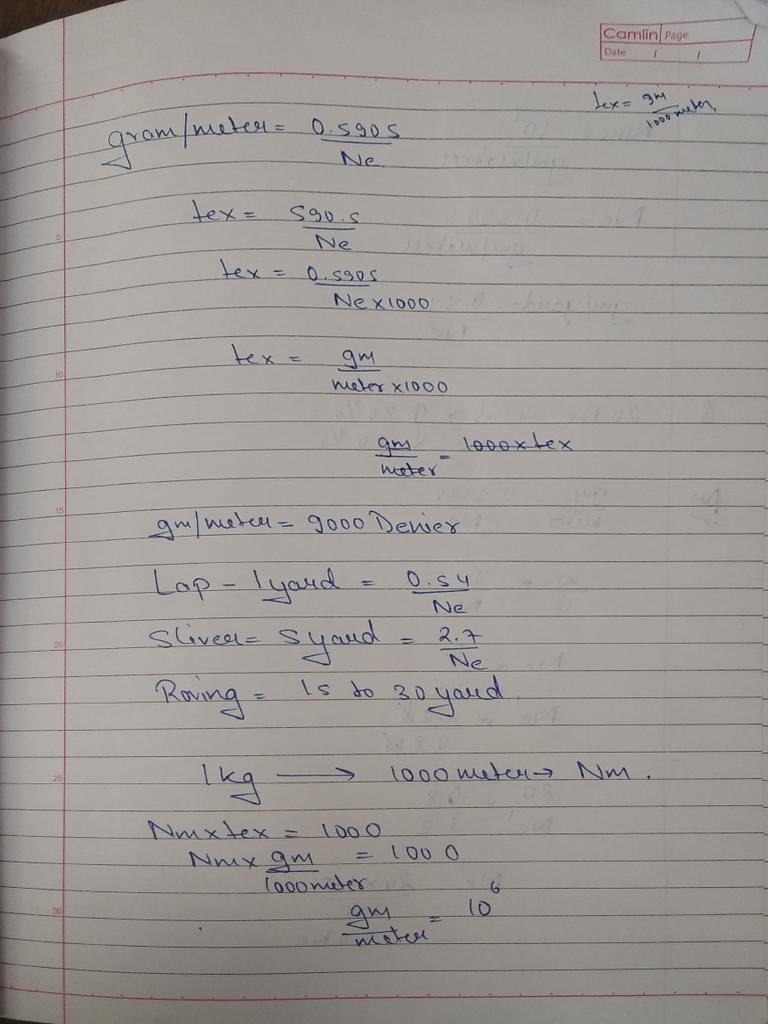 Camlin Page
Date / /
tex = gm / 1000 meter.
gram/meter = 0.5905 / Ne.
tex = 590.5 / Ne
tex = 0.5905 / Ne x 1000
tex = gm / meter x 1000
gm / meter = 1000 x tex
gm/meter = 9000 Denier
Lap - 1 yard = 0.54 / Ne
Sliver = 5 yard = 2.7 / Ne
Roving = 15 to 30 yard.
1 kg → 1000 meter → Nm.
Nm x tex = 1000
Nm x gm / 1000 meter = 1000
gm / meter = 10^6
5
10
15
20
25
30